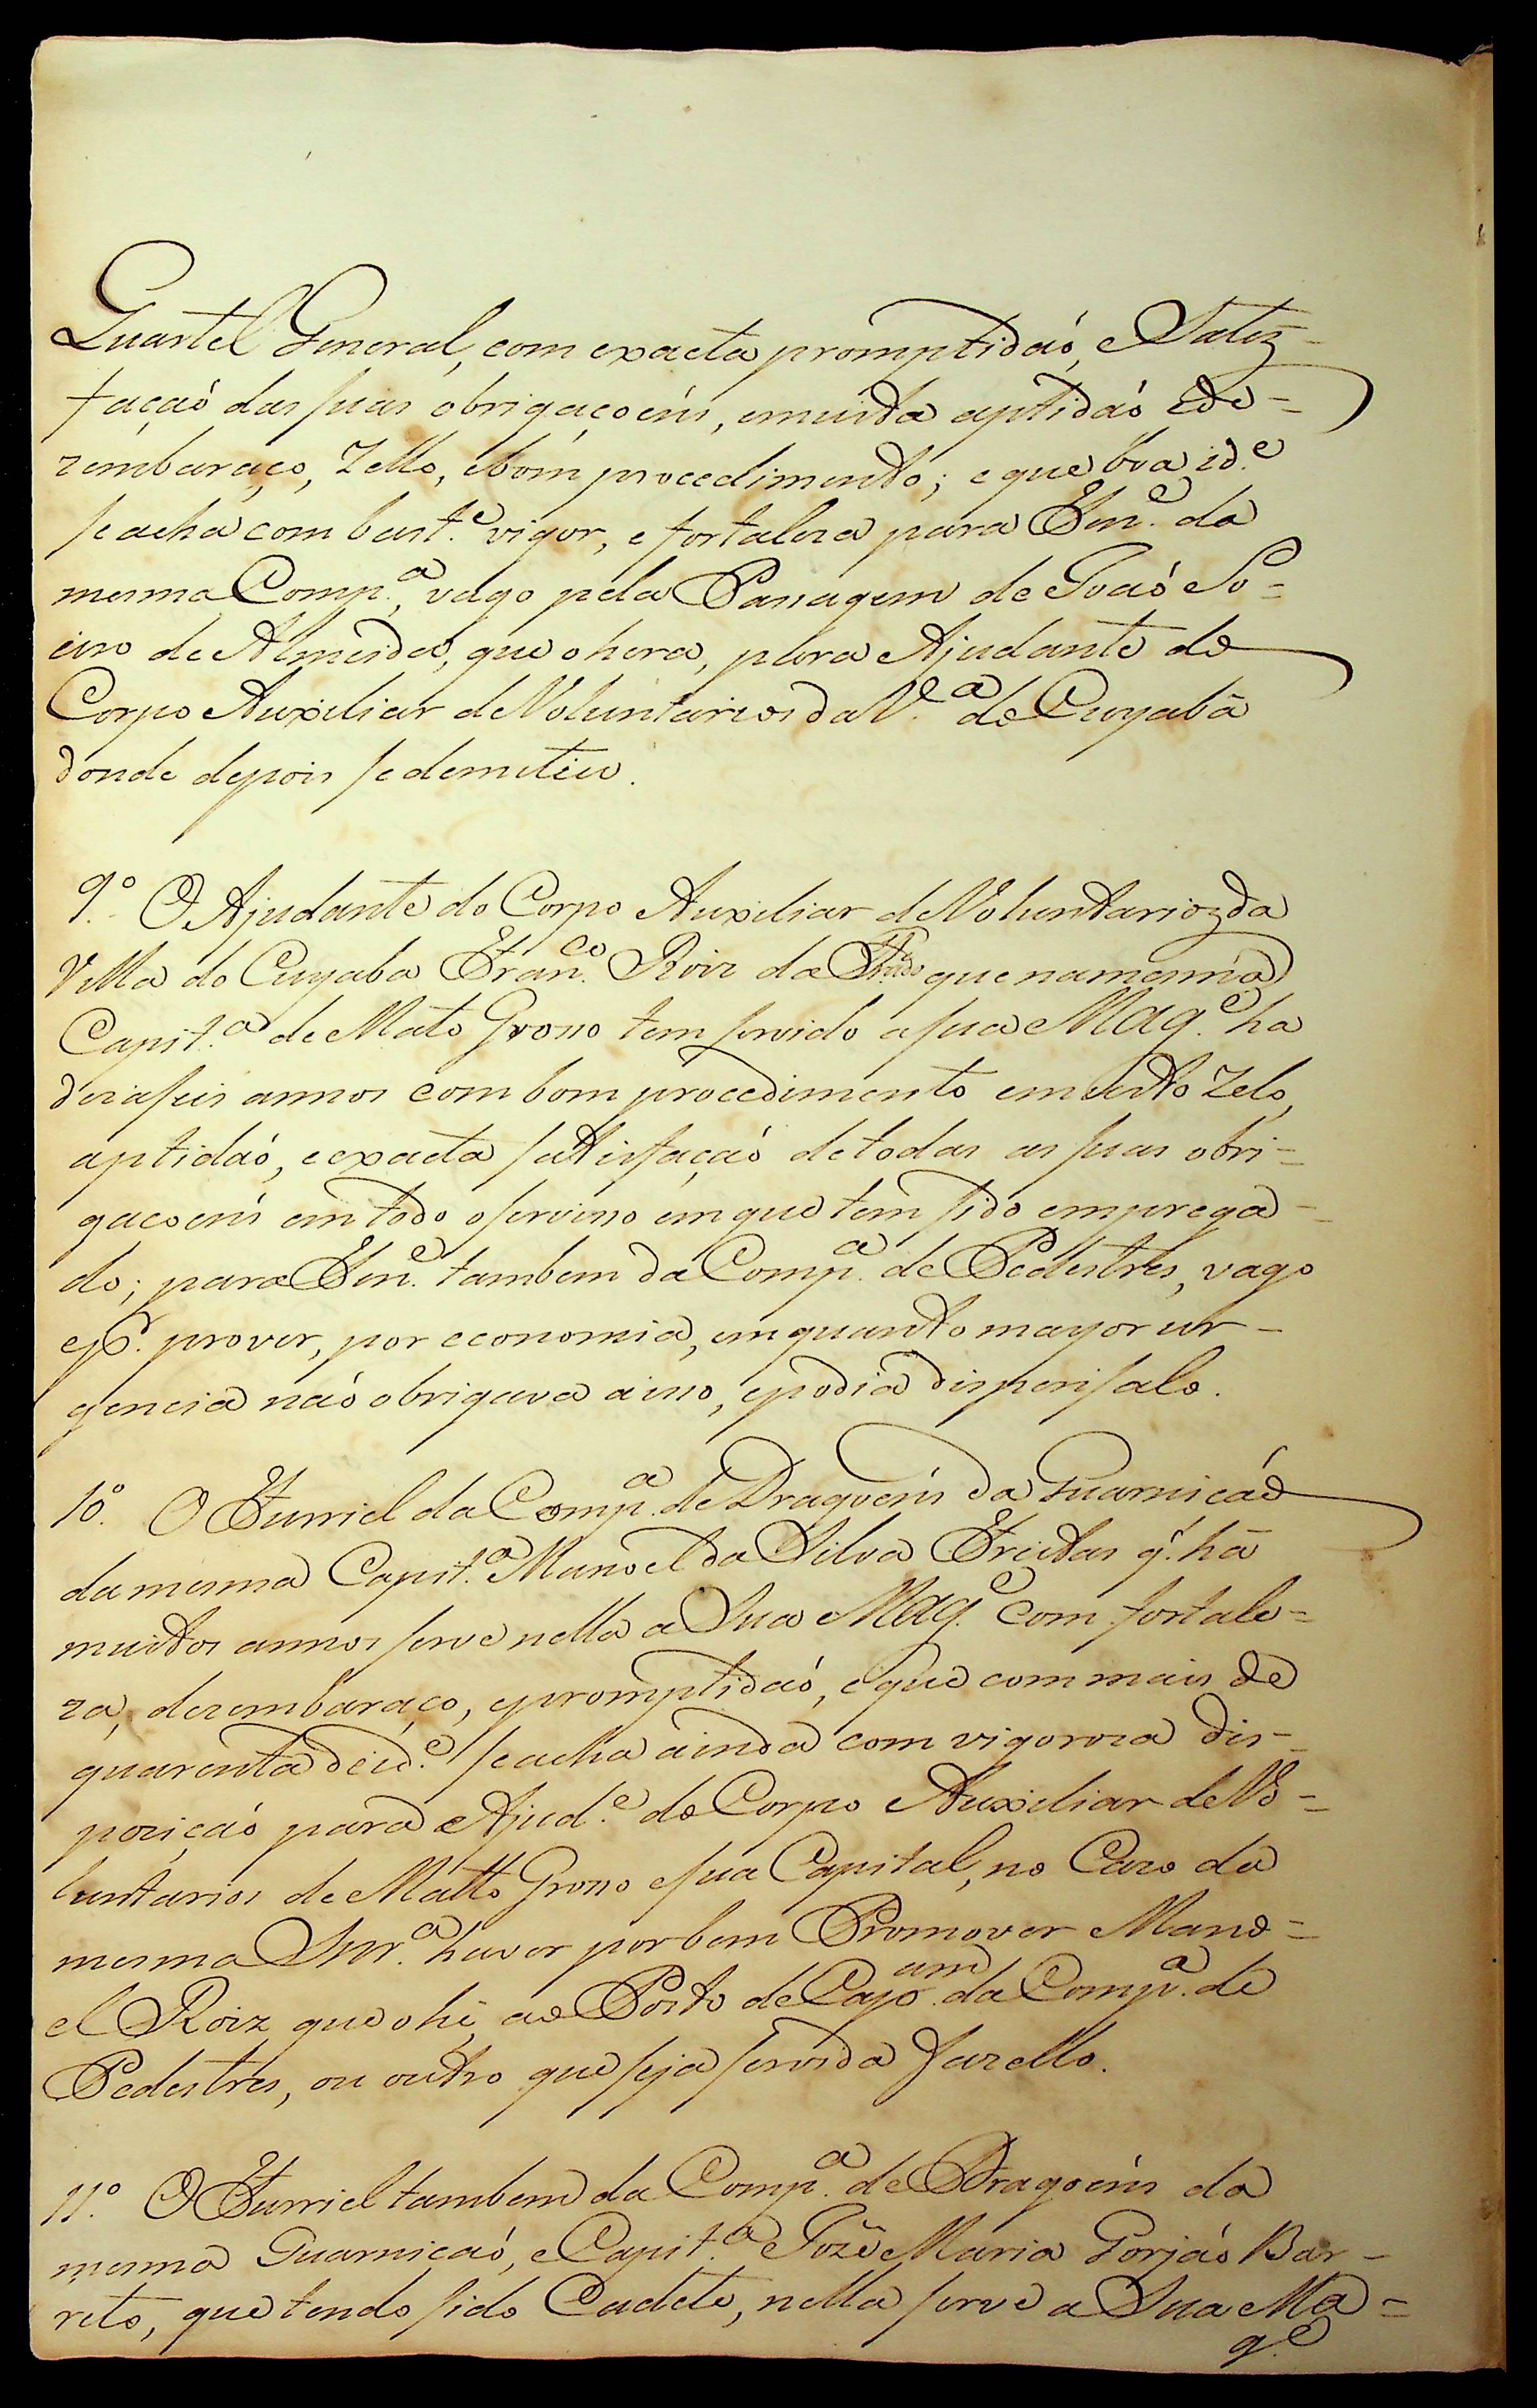 Quartel General, com exacta promptidaõ, e Satiz-
façaõ das suas obrigaçoẽns, emuita aptidaõ Ede-
zembaraço, Zello, ebom procedimento; e que boa id.e
se acha com bast.e vigor, e fortaleza para Ten.e da
mesma Comp.a, vago pela Passagem de Joaõ So-
eiro de Almeida, que o hera, para Ajudante do
Corpo Auxiliar de Voluntarios da V.a do Cuyabá
donde depois se demetiu.
9.o O Ajudante do Corpo Auxiliar de Voluntarioz da
Villa do Cuyaba Fran.co Roiz do Prado que na mesma
Capit.a de Mato Grosso tem servido a sua Mag.e ha
dezaseis annos com bom procedimento emuito Zelo,
aptidaõ, e exacta satisfaçaõ de todas as suas obri-
gacoens em todo o serviso em que tem sido emprega-
do; para Ten.e tambem da Comp.a de Pedestres, vago
e p.r prover, por economia, emquanto mayor ur-
gencia naõ obrigava aisso, epodia dispensalo.
10.o O Furriel da Comp.a de Dragoẽns da Guarniçaõ
da mesma Capit.a Manoel da Silva Freitas q. há
muitos annos serve nella a Sua Mag.e com fortale-
za, dezembaraço, epromptidaõ, e que com mais de
quarenta de id.e se acha ainda com vigoroza dis-
poziçaõ para Ajud.e do Corpo Auxiliar de Vo-
luntarios de Matto Grosso e sua Capital, no Cazo da
mesma Snr.a haver por bem Promover Mano-
el Roiz que o hé ao Posto de Cap.am da Comp.a de
Pedestres, ou outro que seja servida fazello.
11.o O Furriel tambem da Comp.a de Dragoẽns da
mesma Guarniçaõ, e Capit.a Jozé Maria Gorjaõ Bar-
reto, que tendo sido Cadete, nella serve a Sua Ma-
g.e